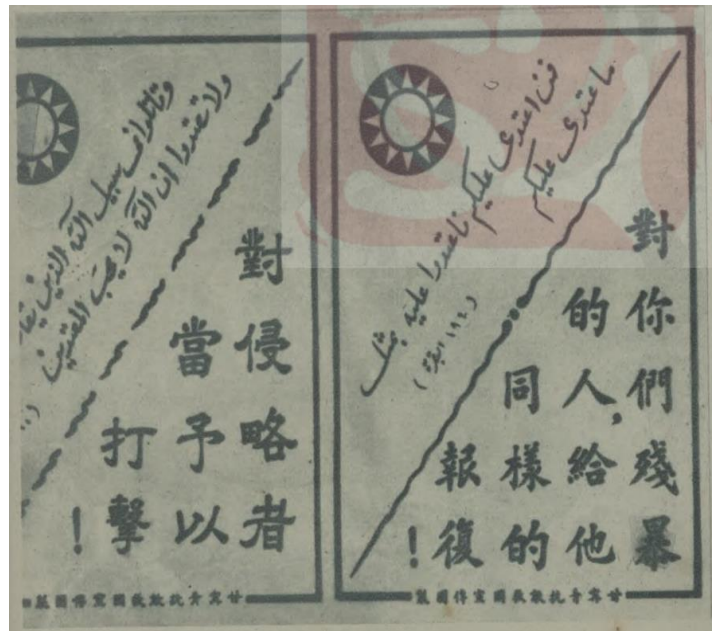 فمن اعتدى عليكم فاعتدوا عليه بمثل
ما عتدى عليكم
(١٩٤ البقرة)
對你們殘暴
的人,給他
同樣的
報復!
甘寧青抗敵救國宣傳團製
وقاتلوا فى سبيل الله الذين يقا
ولا تعتدوا ان الله لا يحب المعتدين
對侵略者
當予以
打擊!
甘寧青抗敵救國宣傳團製